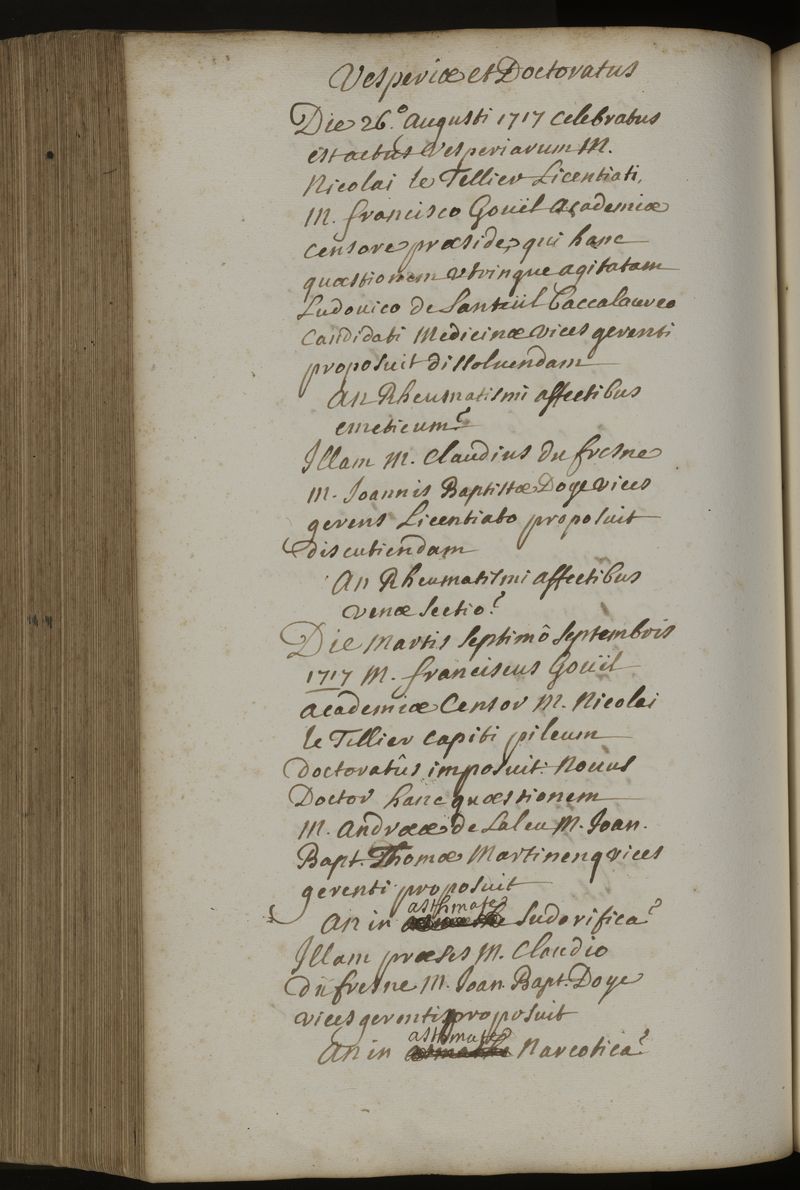 Vesperiæ et Doctoratus
Die 26.º Augusti 1717 celebratus
est actus Vesperiarum M.
Nicolai le Tellier Licentiati,
M. francisco Gouïl Academiæ
Censore præside, qui hanc
quæstionem utrinque agitatam
Ludovico de Santeüil Baccalaureo
Candidati Medicinæ vices gerenti
proposuit dissolvendam
An Rheumatismi affectibus
emeticum?
Illam M. Claudius du fresne
M. Joannis Baptistæ Doye vices
gerens Licentiato proposuit
discutiendam
An Rheumatismi affectibus
venæ sectio?
Die Martis septimô septembris
1717 M. franciscus Gouïl
academiæ Censor M. Nicolai
le Tillier capiti pileum
doctoratûs imposuit. Novus
Doctor hanc quæstionem
M. Andrææ de Laleu M. Joan.
Bapt. Thomæ Martinenq vices
gerenti proposuit
An in asthmate sudorifica?
Illam præses M. Claudio
du fresne M. Joan. Bapt. Doye
vices gerenti proposuit
An in asthmate Narcotica?